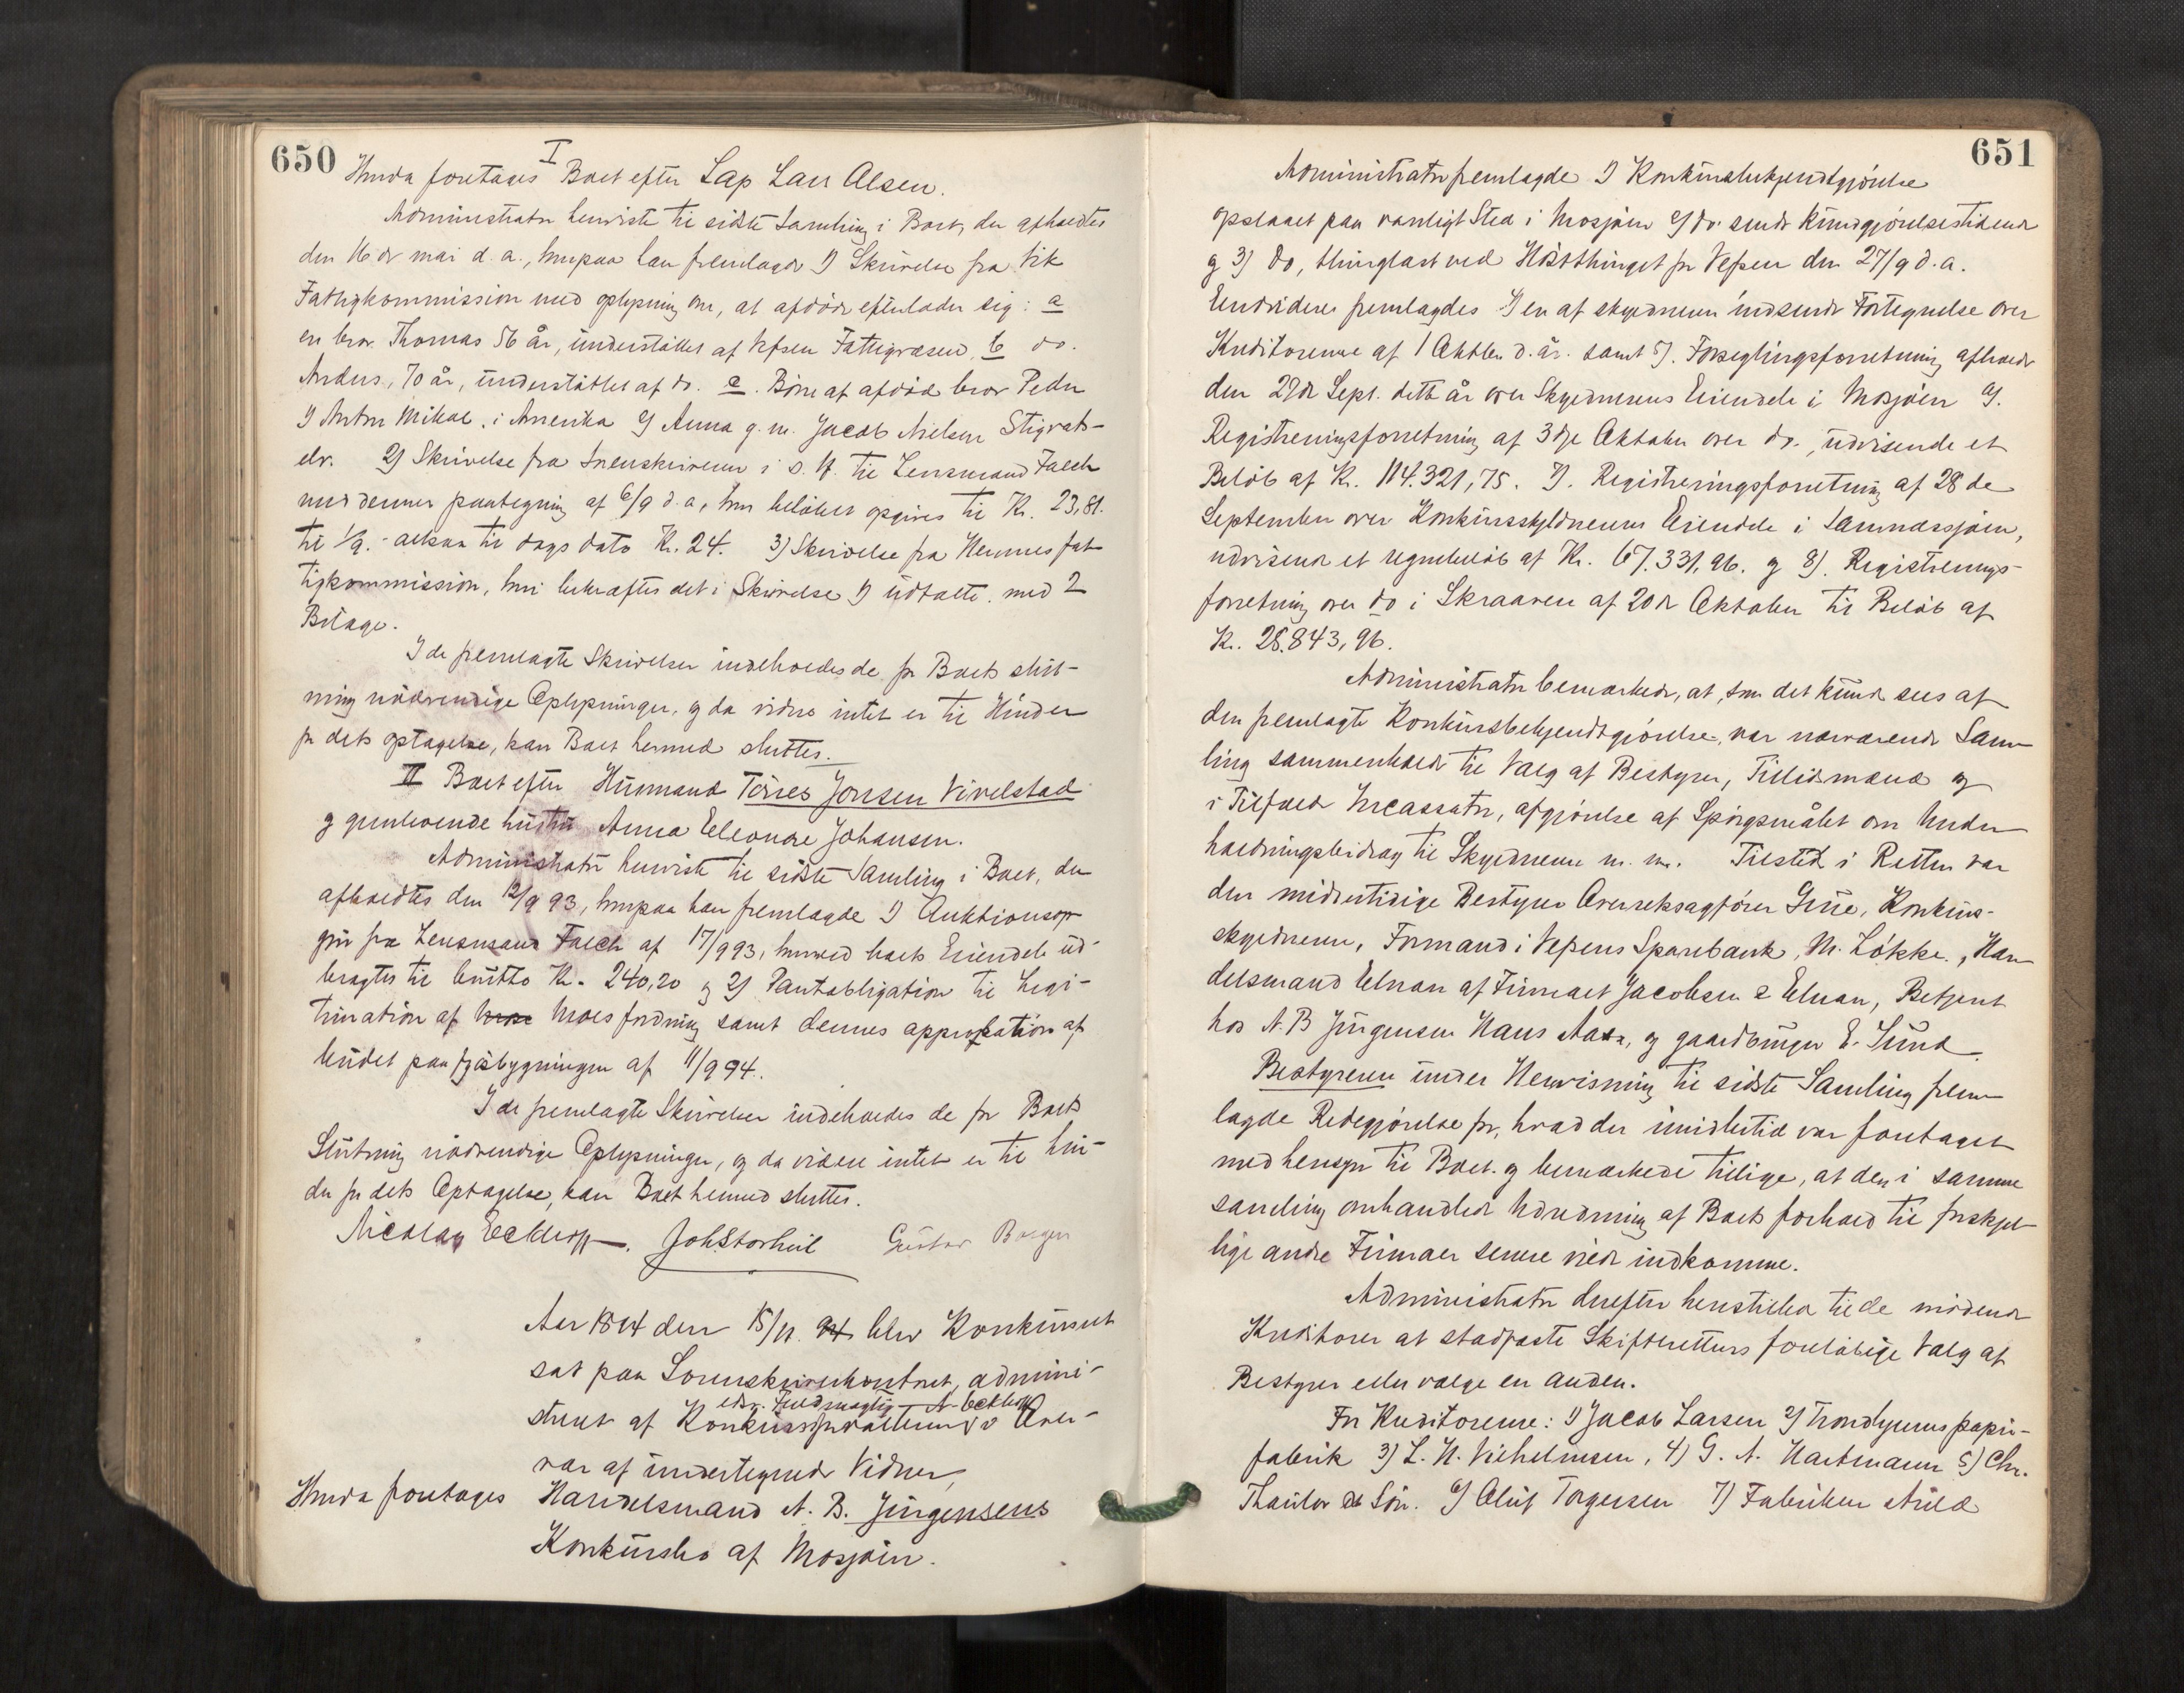 650
I
Hvorda foretages Boet efter Lap Lars Olsen.
Administrator henviste til sidste Samling i Boet, der afholdtes
den 16de mai d. a., hvorpaa han fremlagde 1) Skrivelse fra Vik
Fattigkommission med oplysning om, at afdöde efterlader sig: a
en bror Thomas 56 år, understöttet af Vefsen Fattigvæsen, b do.
Anders, 70 år, understöttet af do. c. Börn af afdöd bror Peder
1) Anton Mikal, i Amerika 2) Anna g. m. Jacob Nielsen Stigvats-
elv. 2) Skrivelse fra Sorenskriveren i S. H. til Lensmand Falch
med dennes paategning af 6/9 d. a, hvor belöbet opgives til Kr. 23,81.
til 1/9. - altsaa til dags dato Kr. 24. 3) Skrivelse fra Hemnes fat-
tigkommission, hvori bekræftes det i Skrivelse 1) udtalte. med 2
Bilage.
I de fremlagte Skrivelser indeholdes de for Boets slut-
ning nödvendige Oplysninger, og da videre intet er til Hinder
for dets optagelse, kan Boet hermed sluttes.
II Boet efter Husmand Törres Jonsen Vivelstad
og gjenlevende hustru Anna Eleonore Johansen.
Administrator henviste til sidste Samling i Boet, der
afholdtes den 12/9 93, hvorpaa han fremlagde 1) Auktionsop-
gjör fra Lensmand Falch af 17/9 93, hvorved boets Eiendele ud-
bragtes til brutto Kr. 240,20 og 2) Pantobligation til Legi-
timation af Moes fordring samt dennes approbation af
budet paa fjösbygningen af 11/9 94.
I de fremlagte Skrivelser indeholdes de for Boets
Slutning nödvendige Oplysninger, og da videre intet er til hin-
der for dets Optagelse, kan Boet hermed sluttes.
Nicolay Eckhoff. Joh Storheil Gustav Borgen
Aar 1894 den 15/11. 94 blev Konkursret
sat paa Sorenskriverkontoret, admini-
edsv. Fuldmægtig N. Eckhoff
streret af Konkursforvalteren v Over-
var af undertegnede Vidner,
Hvorda foretages Handelsmand A. B. Jürgensens
Konkursbo af Mosjöen.
651
Administrator fremlagde 1) Konkursbekjendtgjörelse
opslaaet paa vanligt Sted i Mosjöen 2) do. sendt Kundgjörelsestidende
og 3) do, thinglæst ved Höstthinget for Vefsen den 27/9 d. a.
Endvidere fremlagdes 4) en af skyldneren indsendt Fortegnelse over
Kreditorerne af 1 Oktbr. d. år. samt 5). Forseglingsforretning afholdt
den 22de Sept. dette år over Skyldnerens Eiendele i Mosjöen 6).
Registreringsforretning af 3dje Oktober over do., udvisende et
Belöb af Kr. 114.321,75. 7). Registreringsforretning af 28de
September over Konkursskyldnerens Eiendele i Sannæssjöen,
udvisende et regnebelöb af Kr. 67.331,96. og 8). Registrerings-
forretning over do i Skraaven af 20de Oktober til Belöb af
Kr. 28.843,96.
Administrator bemærkede, at, som det kunde sees af
den fremlagte Konkursbekjendtgjörelse, var nærværende Sam-
ling sammenkaldt til Valg af Bestyrer, Tillidsmænd og
i Tilfælde Incassator, afgjörelse af Spörgsmålet om Under-
holdningsbidrag til Skyldneren m. m. Tilsted i Retten var
den midlertidige Bestyrer Overretssagförer Grüe, Konkurs-
skyldneren, Formand i Vefsens Sparebank, M. Lökke, Han-
delsmand Elnan af Firmaet Jacobsen & Elnan, Betjent
hos A. B Jürgensen Hans Aas, og gaardbruger E. Sund.
Bestyreren under Henvisning til sidste Samling frem-
lagde Redegjörelse for, hvad der imidlertid var foretaget
med hensyn til Boet. og bemærkede tillige, at den i samme
samling omhandlede Udredning af Boets forhold til forskjel-
lige andre Firmaer senere vilde indkomme.
Administrator derefter henstillede til de mödende
Kreditorer at stadfæste Skifterettens foreløbige Valg af
Bestyrer eller vælge en anden.
For Kreditorerne: 1) Jacob Larsen 2) Trondhjems papir-
fabrik 3) L. H. Vilhelmsen, 4) G. A. Hartmann 5) Chr.
Thaulow & Sön. 6) Oluf Torgersen 7) Fabriken